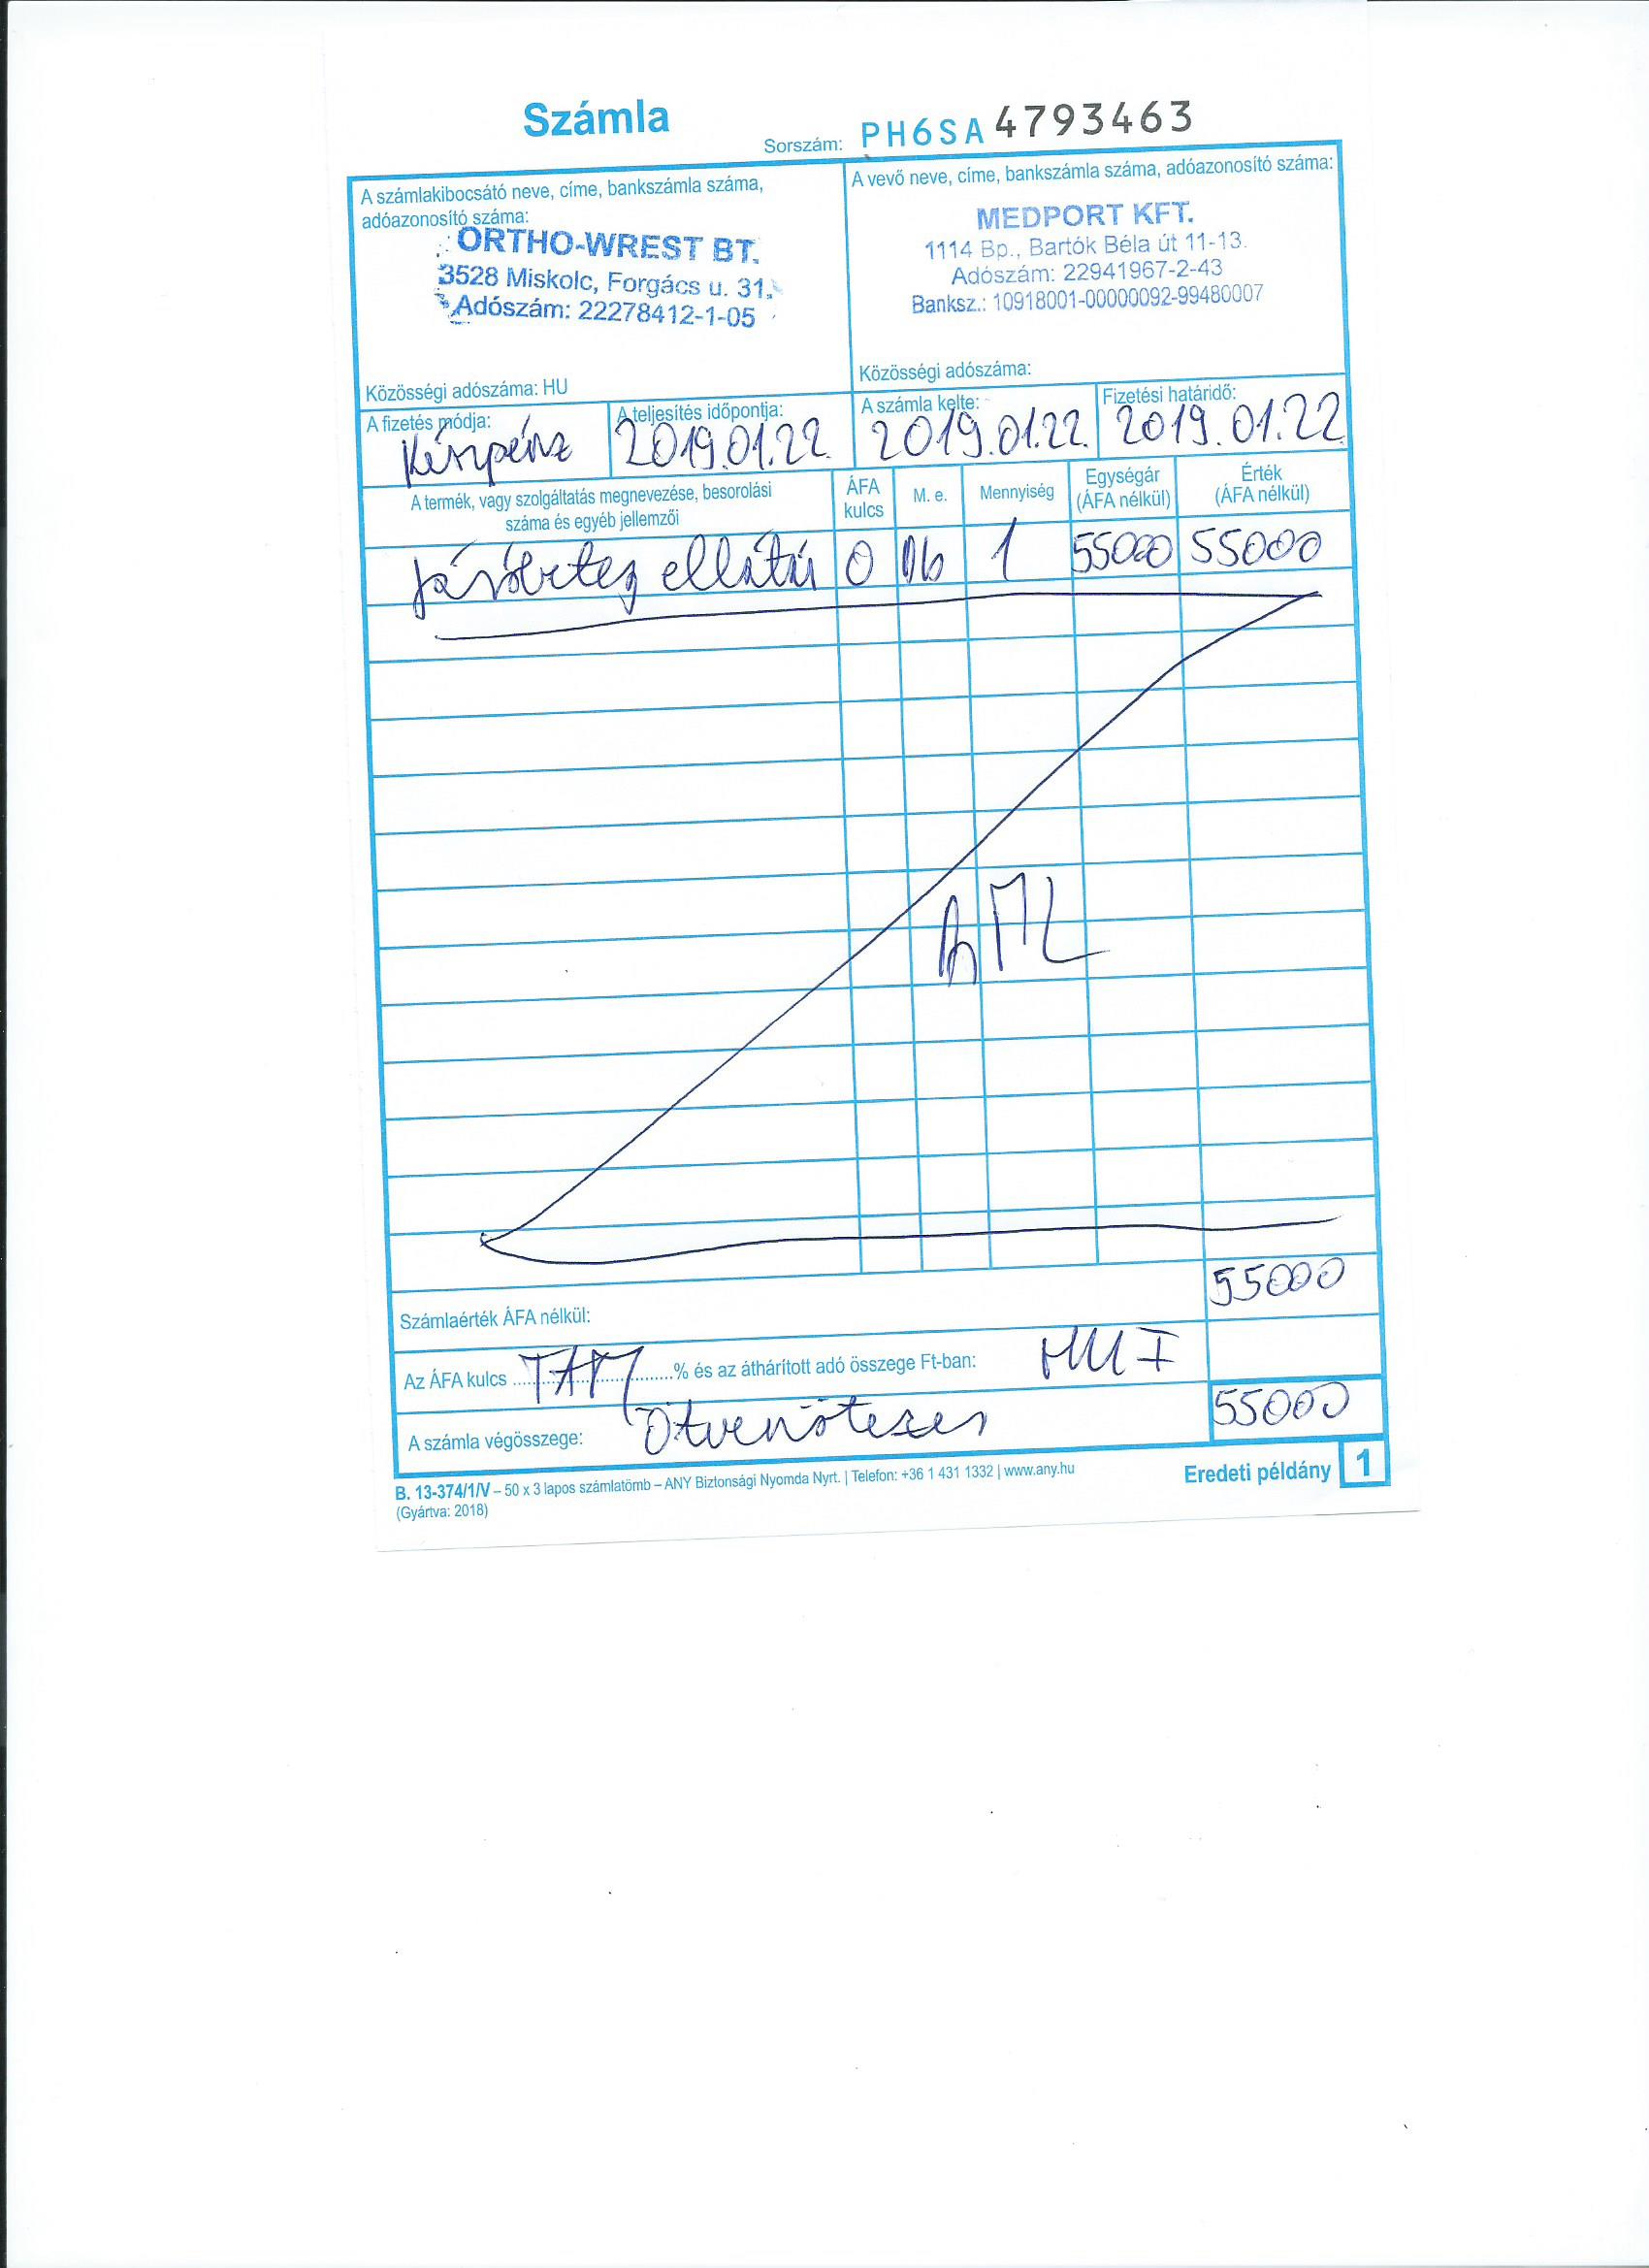 Számla
Sorszám: PH6SA 4793463
A számlakibocsátó neve, címe, bankszámla száma,
adóazonosító száma:
ORTHO-WREST BT.
3528 Miskolc, Forgács u. 31.
Adószám: 22278412-1-05
Közösségi adószáma: HU
A vevő neve, címe, bankszámla száma, adóazonosító száma:
MEDPORT KFT.
1114 Bp., Bartók Béla út 11-13.
Adószám: 22941967-2-43
Banksz.: 10918001-00000092-99480007
Közösségi adószáma:
A fizetés módja:
Készpénz
A teljesítés időpontja:
2019.01.22.
A számla kelte:
2019.01.22.
Fizetési határidő:
2019.01.22
A termék, vagy szolgáltatás megnevezése, besorolási
száma és egyéb jellemzői
ÁFA
kulcs
M. e.
Mennyiség
Egységár
(ÁFA nélkül)
Érték
(ÁFA nélkül)
Járóbeteg ellátás 0 db 1 55000 55000
Számlaérték ÁFA nélkül: 55000
Az ÁFA kulcs TAM % és az áthárított adó összege Ft-ban:
A számla végösszege: Ötvenötezer 55000
B. 13-374/1/V – 50 x 3 lapos számlatömb – ANY Biztonsági Nyomda Nyrt. | Telefon: +36 1 431 1332 | www.any.hu
(Gyártva: 2018)
Eredeti példány 1